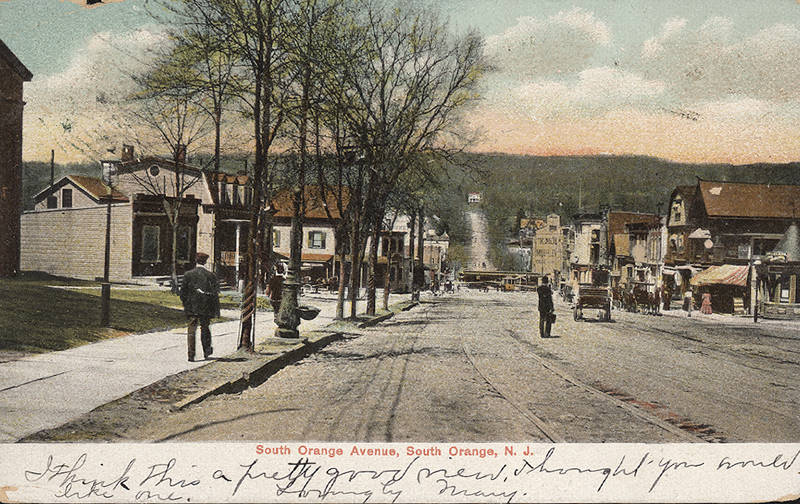 South Orange Avenue, South Orange, N. J.
I think this a pretty good view, I thought you would
like one. Lovingly Mary.